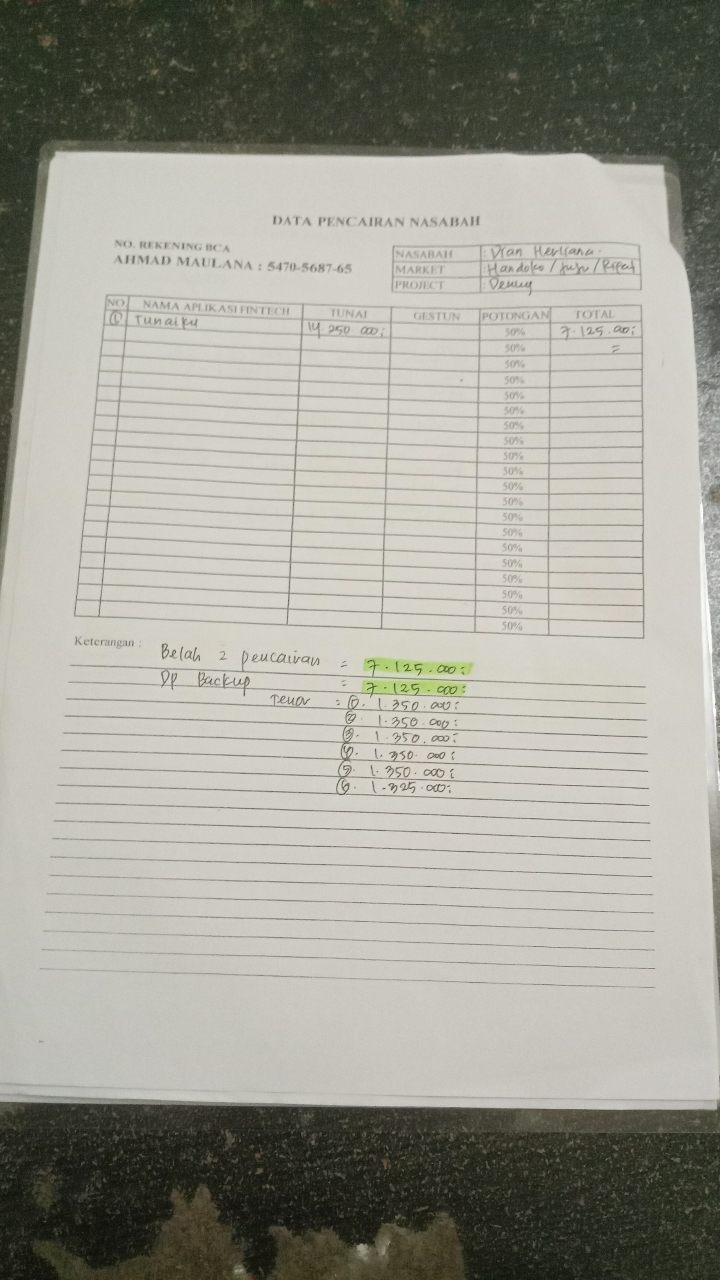 DATA PENCAIRAN NASABAH
NO. REKENING BCA
AHMAD MAULANA : 5470-5687-65
NASABAH : Dian Herliana.
MARKET : Handoko / Juju / Rifat
PROJECT : Denny
NO. NAMA APLIKASI FINTECH TUNAI GESTUN POTONGAN TOTAL
① Tunaiku 14.250.000; 50% 7.125.000;
50% =
50%
50%
50%
50%
50%
50%
50%
50%
50%
50%
50%
50%
50%
50%
50%
50%
50%
50%
Keterangan :
Belah 2 pencairan = 7.125.000;
Dp Backup = 7.125.000;
Tenor = ①. 1.350.000;
②. 1.350.000;
③. 1.350.000;
④. 1.350.000;
⑤. 1.350.000;
⑥. 1.325.000;